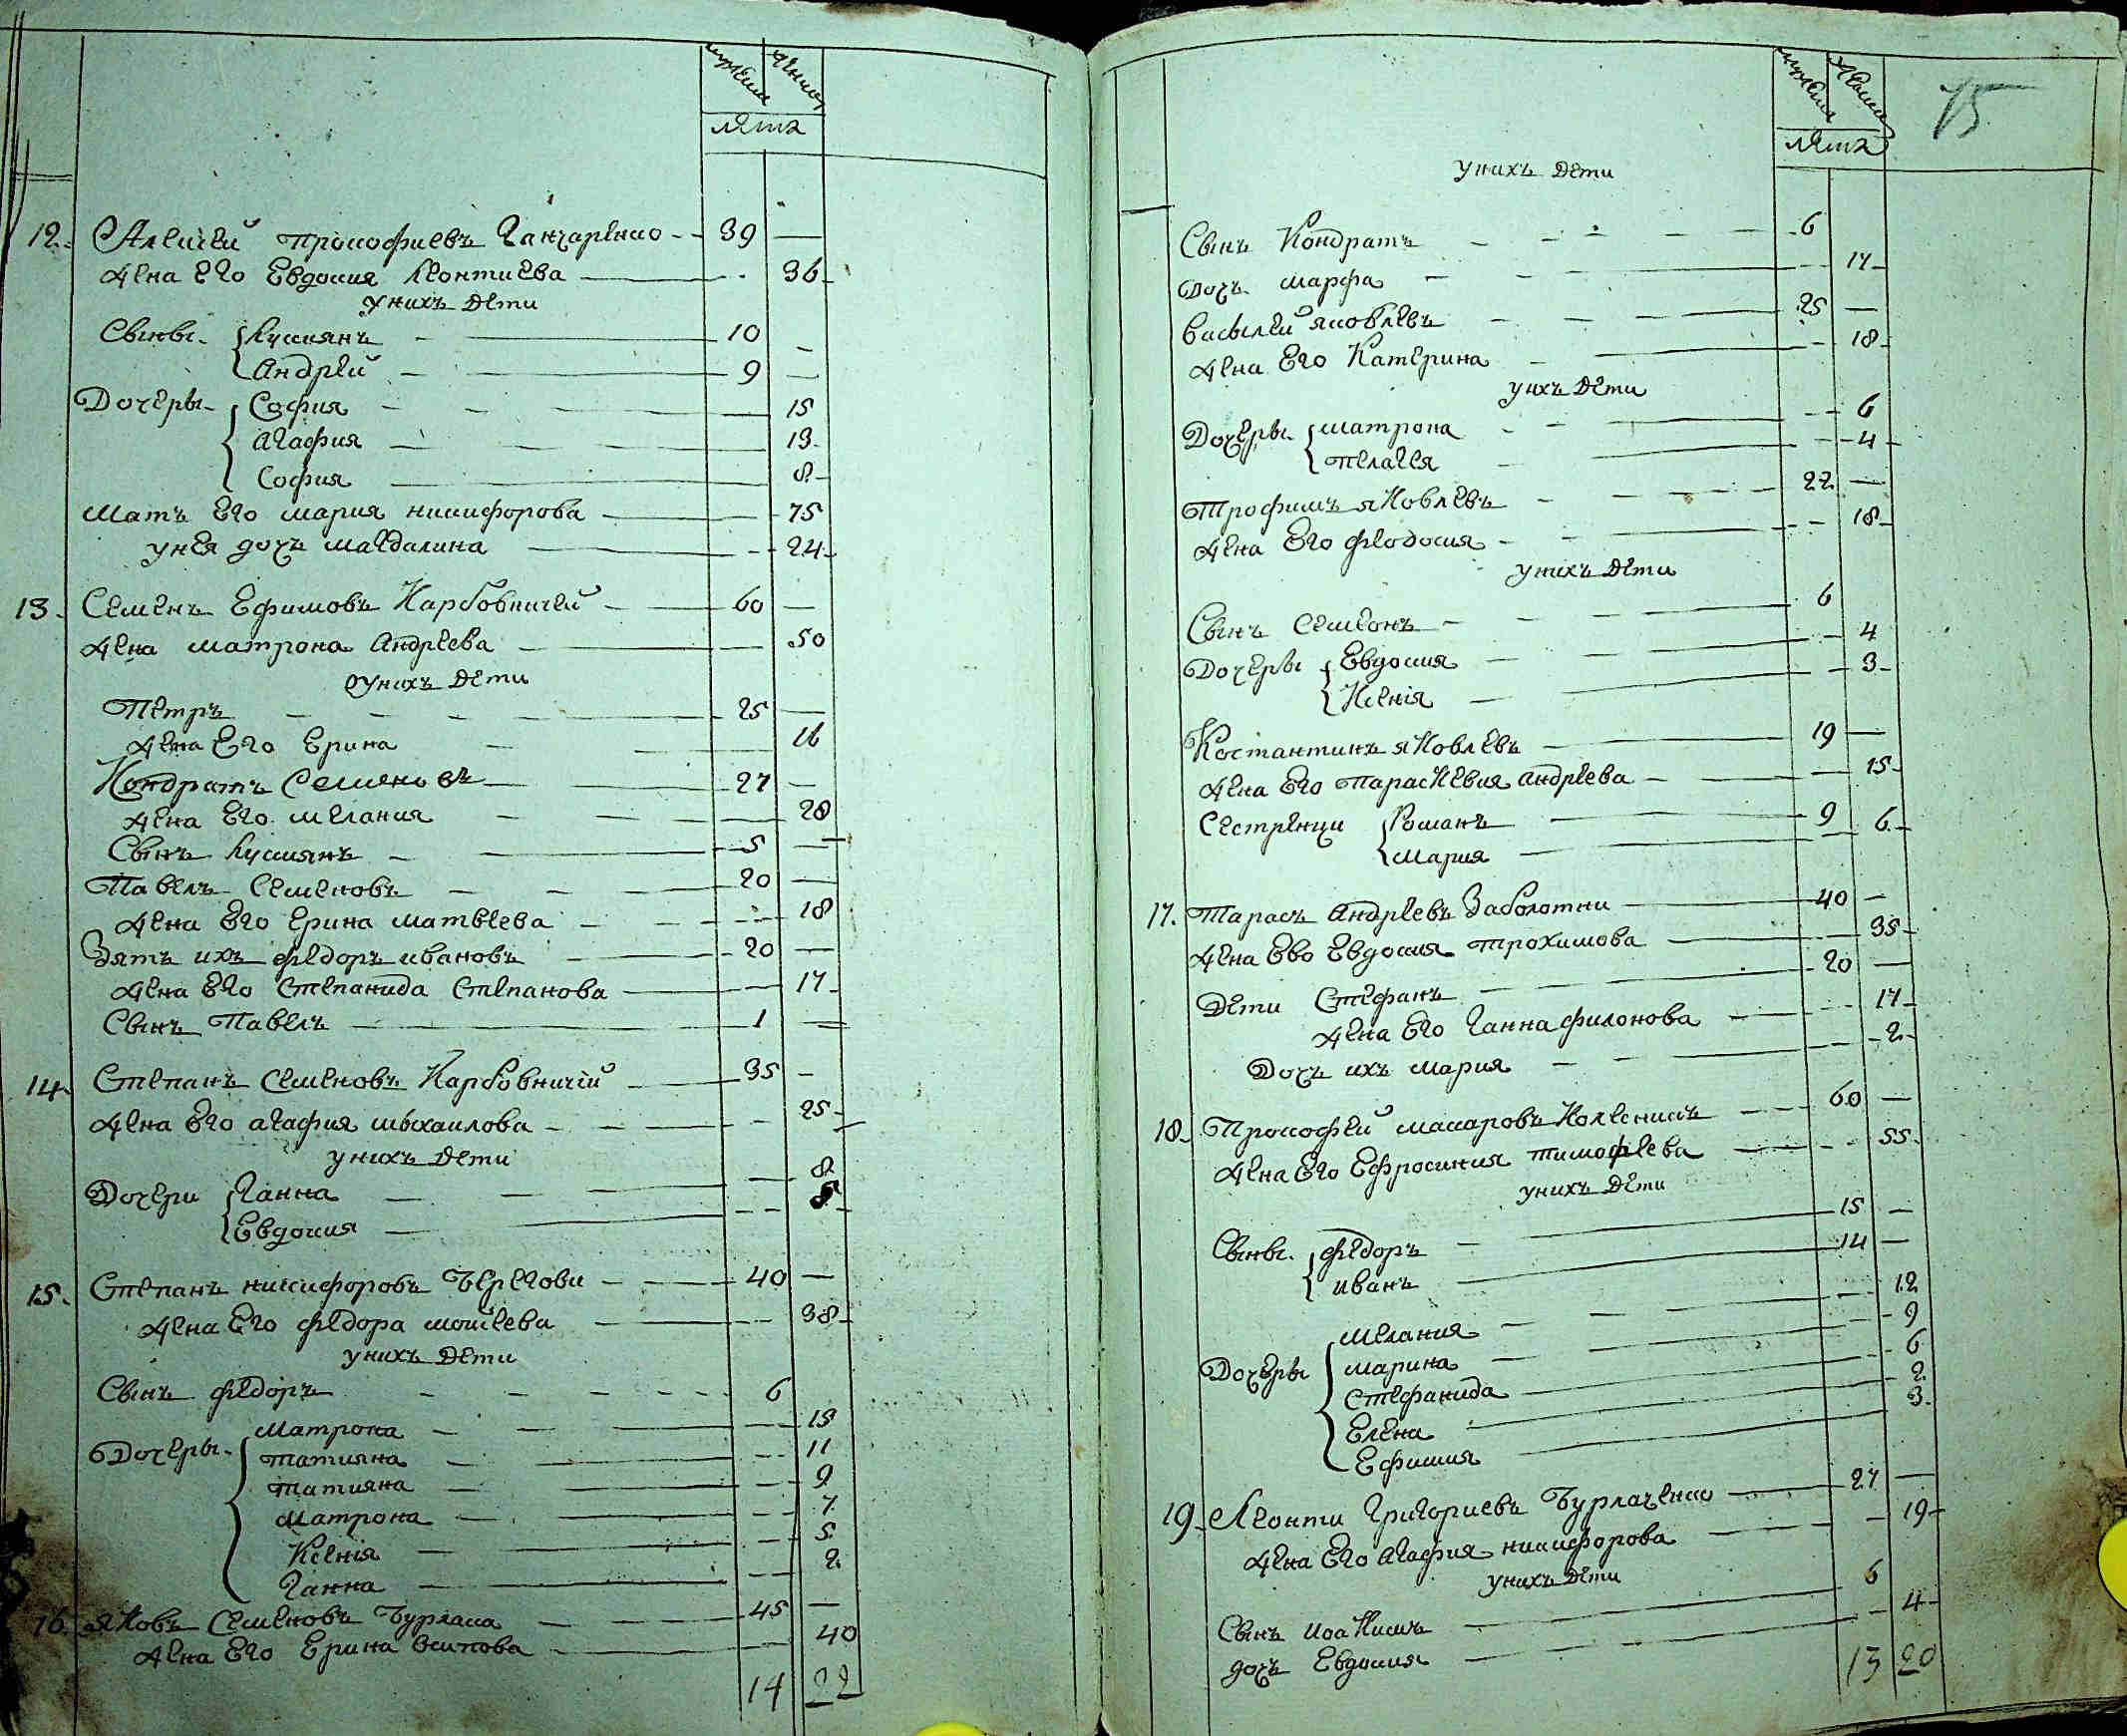 мужеска
женска
лѣта
12. Алексѣй Прокофиевъ Ганчаренко 39
Жена его Евдокия Леонтиева 36
у нихъ дети
Сыны Кузмянъ 10
Андрѣй 9
Дочеры София 15
Агафия 13
София 8
Мать его Мария Никифорова 75
у нея дочь Магдалина 24
13. Семенъ Ефимовъ Карбовничей 60
жена Матрона Андреева 50
у нихъ дети
Петръ 25
жена его Ерина 16
Кондратъ Семеновъ 27
жена его Мелания 28
Сынъ Кузмянъ 5
Павелъ Семеновъ 20
жена его Ерина Матвеева 18
Зять ихъ Федоръ Ивановъ 20
жена его Степанида Степанова 17
Сынъ Павелъ 1
14. Степанъ Семеновъ Карбовничій 35
жена его Агафия Мыхаилова 25
у нихъ дети
Дочери Ганна 8
Евдокия 5
15. Степанъ Никифоровъ Береговы 40
жена его Федора Моисеева 38
у нихъ дети
Сынъ Федоръ 6
Дочеры Матрона 15
Татияна 11
Татияна 9
Матрона 7
Ксенія 5
Ганна 2
16. Яковъ Семеновъ Бурлака 45
жена его Ерина Осипова 40
14 22
75
мужеска
женска
лѣта
у нихъ дети
Сынъ Кондратъ 6
Дочь Марфа 17
Васылей Яковлевъ 25
жена его Катерина 18
у нихъ дети
Дочеры Матрона 6
Пелагея 4
Трофимъ Яковлевъ 22
жена его Феодосия 18
у нихъ дети
Сынъ Семеонъ 6
Дочеры Евдокия 4
Ксенія 3
Костантинъ Яковлевъ 19
жена его Параскевия Андреева 15
Сестренцы Романъ 9
Мария 6
17. Тарасъ Андреевъ Заболотни 40
жена ево Евдокия Трохимова 35
Дети Стефанъ 20
жена его Ганна Филонова 17
Дочь ихъ Мария 2
18. Прокофей Макаровъ Колесникъ 60
жена его Ефросиния Тимофеева 55
у нихъ дети
Сыны Федоръ 15
Иванъ 14
Мелания 12
Дочеры Марина 9
Стефанида 6
Елена 2
Ефимия 3
19. Леонти Григориевъ Бурлаченко 27
жена его Агафия Никифорова 19
у нихъ дети
Сынъ Иоакимъ 6
дочь Евдокия 4
13 20